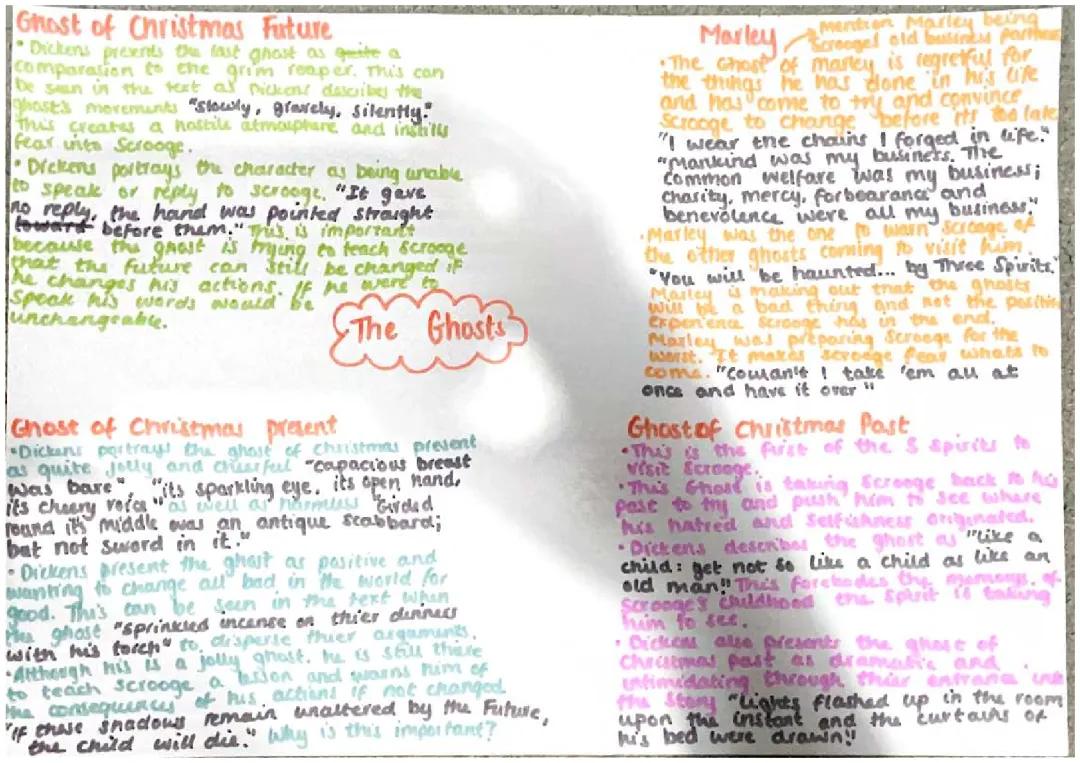 Ghost of Christmas Future
• Dickens presents the last ghost as quite a
comparasion to the grim reaper. This can
be seen in the text as Dickens describes the
ghost's movements "slowly, gravely, silently."
This creates a hostile atmosphere and instills
fear into Scrooge.
• Dickens portrays the character as being unable
to speak or reply to scrooge. "It gave
no reply, the hand was pointed straight
toward before them." This is important
because the ghost is trying to teach Scrooge
that the future can still be changed if
he changes his actions. If he were to
speak his words would be
unchangeable.
The Ghosts
Marley
mention Marley being
Scrooges old business partner
• The Ghost of marley is regretful for
the things he has done in his life
and has come to try and convince
Scrooge to change before its too late
"I wear the chains I forged in life."
"Mankind was my business. The
common welfare was my business;
charity, mercy, forbearance and
benevolence were all my business."
• Marley was the one to warn scrooge of
the other ghosts coming to visit him.
"You will be haunted... by Three Spirits."
Marley is making out that the ghosts
will be a bad thing and not the positive
experience Scrooge has in the end.
Marley was preparing Scrooge for the
worst. It makes scrooge fear whats to
come. "Couldn't I take 'em all at
once and have it over"
Ghost of Christmas present
• Dickens portrays the ghost of christmas present
as quite jolly and cheerful "capacious breast
was bare", "its sparkling eye, its open hand,
its cheery voice" as well as harmless "Girded
round it's middle was an antique scabbard;
but not sword in it."
• Dickens present the ghost as positive and
wanting to change all bad in the world for
good. This can be seen in the text when
the ghost "sprinkled incense on thier dinners
with his torch" to disperse thier arguments.
• Although his is a jolly ghost, he is still there
to teach scrooge a lesson and warns him of
the consequences of his actions if not changed
"if these shadows remain unaltered by the Future,
the child will die." Why is this important?
Ghost of Christmas Past
• This is the first of the 3 Spirits to
visit Scrooge.
• This Ghost is taking Scrooge back to his
past to try and push him to see where
his hatred and selfishness originated.
• Dickens describes the ghost as "like a
child: yet not so like a child as like an
old man." This forebodes the memorys of
Scrooge's childhood the Spirit is taking
him to see.
• Dickens also presents the ghost of
Christmas past as dramatic and
intimidating through thier entrance into
the story "Lights flashed up in the room
upon the instant and the curtains of
his bed were drawn."